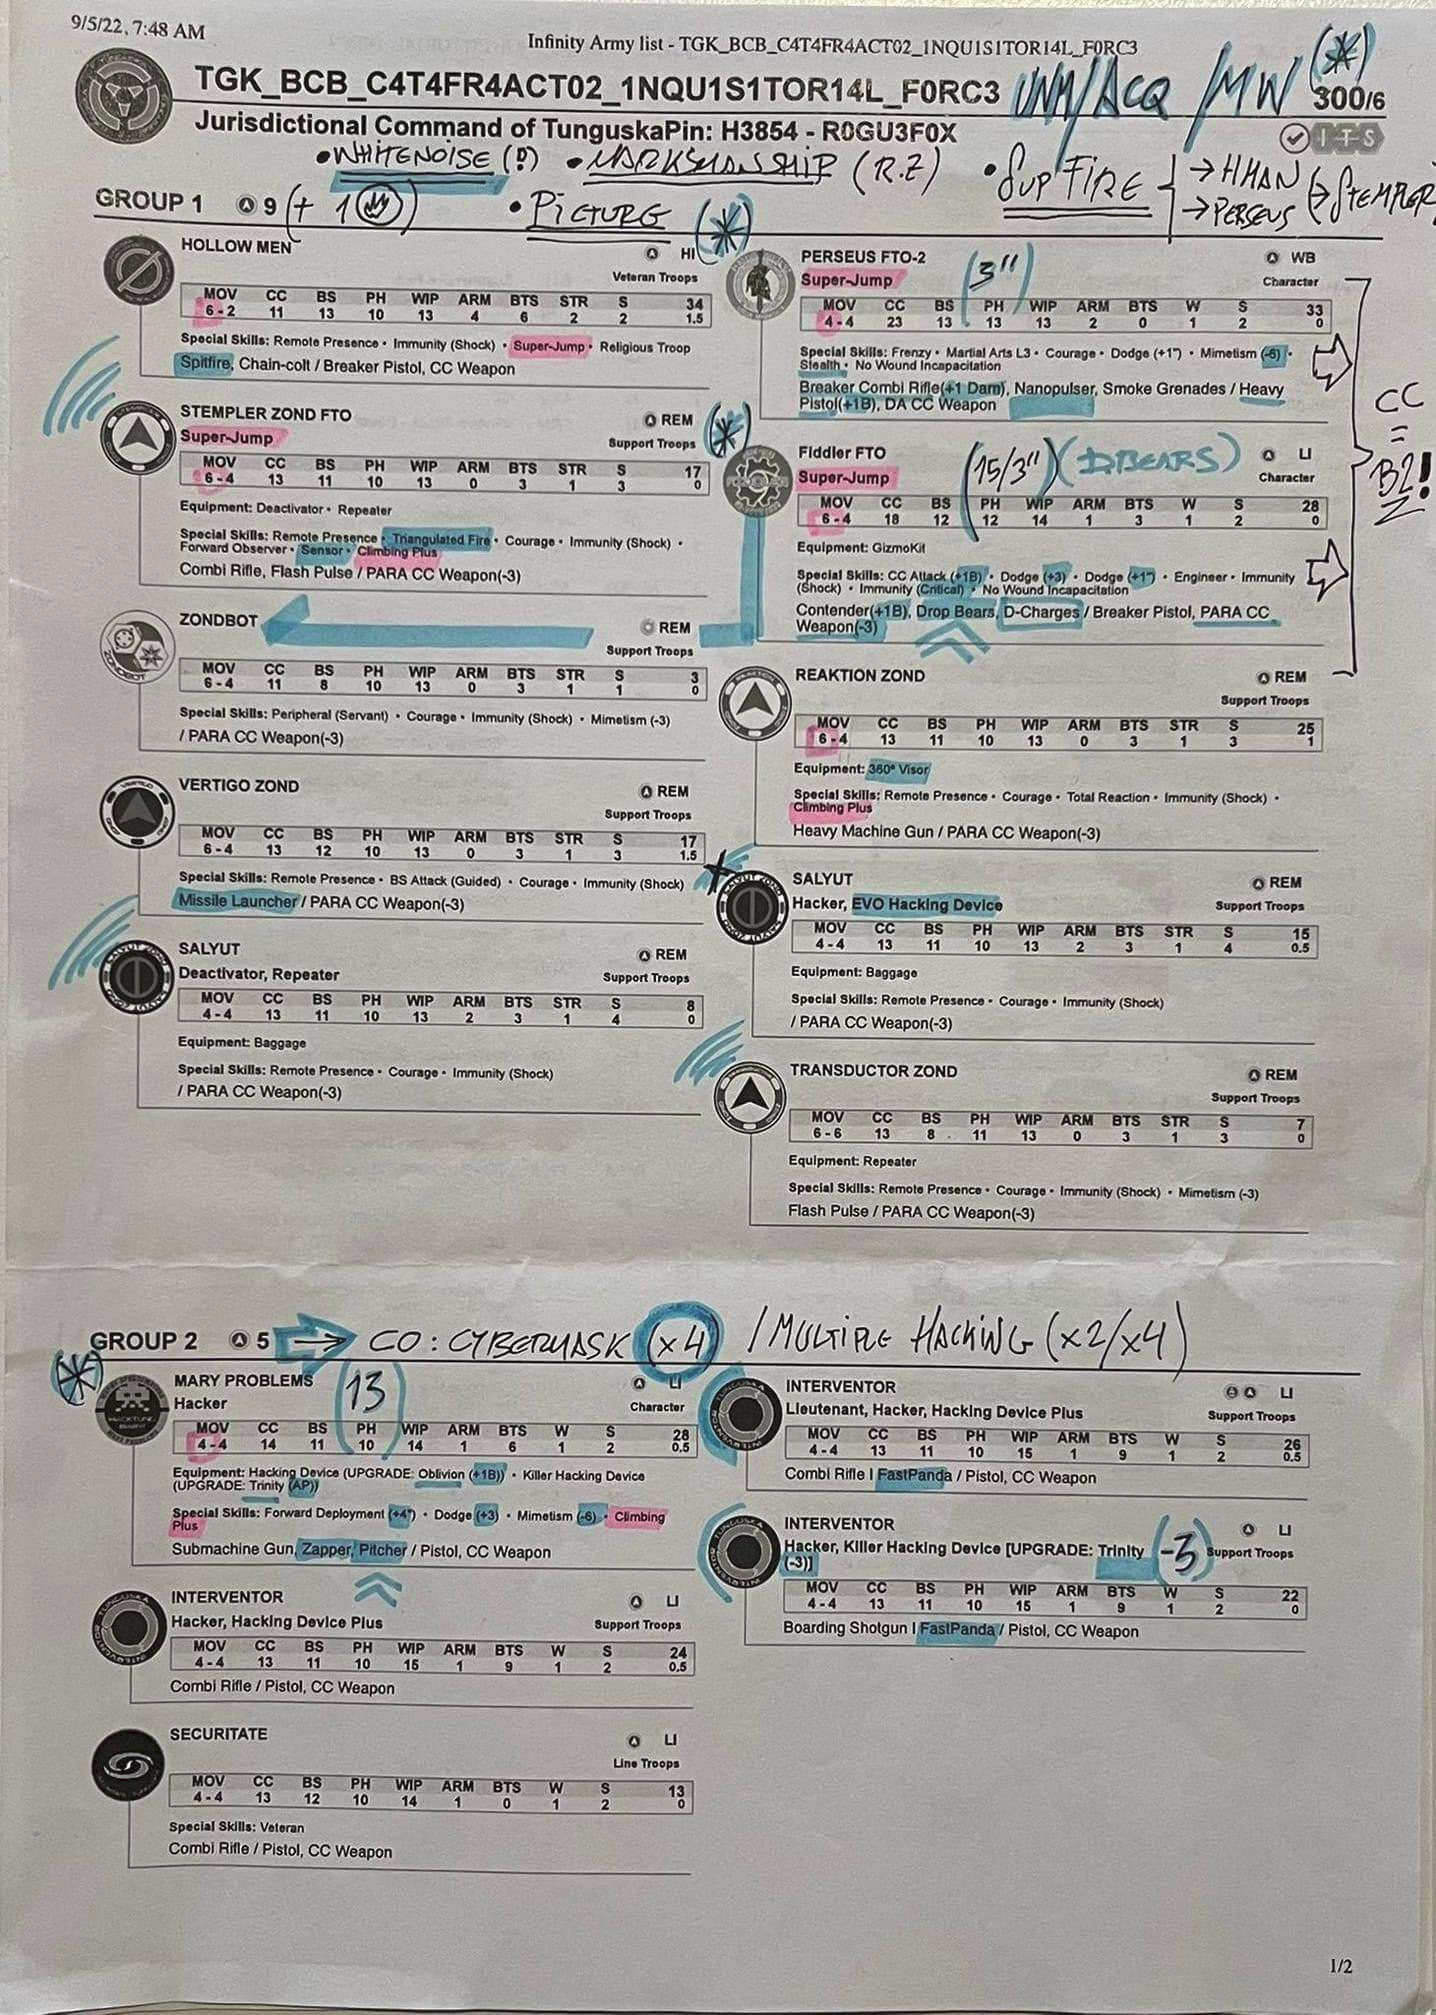 9/5/22, 7:48 AM
Infinity Army list - TGK_BCB_C4T4FR4ACT02_1NQU1S1TOR14L_F0RC3
TGK_BCB_C4T4FR4ACT02_1NQU1S1TOR14L_F0RC3
/ACQ /MW (*)
300/6
Jurisdictional Command of TunguskaPin: H3854 - R0GU3F0X
ITS
• WHITENOISE (!) • MARKSMANSHIP (R.Z) • SUP FIRE → HMAN → STEMPLER
→ PERSEUS
GROUP 1 9 (+ 1 ) • PICTURE (*)
HOLLOW MEN
HI
Veteran Troops
MOV CC BS PH WIP ARM BTS STR S 34
6-2 11 13 10 13 4 6 2 2 1.5
Special Skills: Remote Presence • Immunity (Shock) • Super-Jump • Religious Troop
Spitfire, Chain-colt / Breaker Pistol, CC Weapon
STEMPLER ZOND FTO
REM
Super-Jump
Support Troops
MOV CC BS PH WIP ARM BTS STR S 17
6-4 13 11 10 13 0 3 1 3 0
Equipment: Deactivator • Repeater
Special Skills: Remote Presence • Triangulated Fire • Courage • Immunity (Shock) •
Forward Observer • Sensor • Climbing Plus
Combi Rifle, Flash Pulse / PARA CC Weapon(-3)
ZONDBOT
REM
Support Troops
MOV CC BS PH WIP ARM BTS STR S 3
6-4 11 8 10 13 0 3 1 1 0
Special Skills: Peripheral (Servant) • Courage • Immunity (Shock) • Mimetism (-3)
/ PARA CC Weapon(-3)
VERTIGO ZOND
REM
Support Troops
MOV CC BS PH WIP ARM BTS STR S 17
6-4 13 12 10 13 0 3 1 3 1.5
Special Skills: Remote Presence • BS Attack (Guided) • Courage • Immunity (Shock)
Missile Launcher / PARA CC Weapon(-3)
SALYUT
REM
Deactivator, Repeater
Support Troops
MOV CC BS PH WIP ARM BTS STR S 8
4-4 13 11 10 13 2 3 1 4 0
Equipment: Baggage
Special Skills: Remote Presence • Courage • Immunity (Shock)
/ PARA CC Weapon(-3)
PERSEUS FTO-2
WB
Super-Jump (3")
Character
MOV CC BS PH WIP ARM BTS W S 33
4-4 23 13 13 13 2 0 1 2 0
Special Skills: Frenzy • Martial Arts L3 • Courage • Dodge (+1") • Mimetism (-6) •
Stealth • No Wound Incapacitation
Breaker Combi Rifle(+1 Dam), Nanopulser, Smoke Grenades / Heavy
Pistol(+1B), DA CC Weapon
CC
=
B2!
(*)
Fiddler FTO
LI
Super-Jump (15/3") (DBEARS)
Character
MOV CC BS PH WIP ARM BTS W S 28
6-4 18 12 12 14 1 3 1 2 0
Equipment: GizmoKit
Special Skills: CC Attack (+1B) • Dodge (+3) • Dodge (+1") • Engineer • Immunity
(Shock) • Immunity (Critical) • No Wound Incapacitation
Contender(+1B), Drop Bears, D-Charges / Breaker Pistol, PARA CC
Weapon(-3)
REAKTION ZOND
REM
Support Troops
MOV CC BS PH WIP ARM BTS STR S 25
6-4 13 11 10 13 0 3 1 3 1
Equipment: 360° Visor
Special Skills: Remote Presence • Courage • Total Reaction • Immunity (Shock) •
Climbing Plus
Heavy Machine Gun / PARA CC Weapon(-3)
SALYUT
REM
Hacker, EVO Hacking Device
Support Troops
MOV CC BS PH WIP ARM BTS STR S 15
4-4 13 11 10 13 2 3 1 4 0.5
Equipment: Baggage
Special Skills: Remote Presence • Courage • Immunity (Shock)
/ PARA CC Weapon(-3)
TRANSDUCTOR ZOND
REM
Support Troops
MOV CC BS PH WIP ARM BTS STR S 7
6-6 13 8 11 13 0 3 1 3 0
Equipment: Repeater
Special Skills: Remote Presence • Courage • Immunity (Shock) • Mimetism (-3)
Flash Pulse / PARA CC Weapon(-3)
GROUP 2 5 → CO: CYBERMASK (x4) / MULTIPLE HACKING (x2/x4)
(*)
MARY PROBLEMS
LI
Hacker (13)
Character
MOV CC BS PH WIP ARM BTS W S 28
4-4 14 11 10 14 1 6 1 2 0.5
Equipment: Hacking Device (UPGRADE: Oblivion (+1B)) • Killer Hacking Device
(UPGRADE: Trinity (AP))
Special Skills: Forward Deployment (+4") • Dodge (+3) • Mimetism (-6) • Climbing
Plus
Submachine Gun, Zapper, Pitcher / Pistol, CC Weapon
INTERVENTOR
LI
Hacker, Hacking Device Plus
Support Troops
MOV CC BS PH WIP ARM BTS W S 24
4-4 13 11 10 15 1 9 1 2 0.5
Combi Rifle / Pistol, CC Weapon
SECURITATE
LI
Line Troops
MOV CC BS PH WIP ARM BTS W S 13
4-4 13 12 10 14 1 0 1 2 0
Special Skills: Veteran
Combi Rifle / Pistol, CC Weapon
INTERVENTOR
LI
Lieutenant, Hacker, Hacking Device Plus
Support Troops
MOV CC BS PH WIP ARM BTS W S 26
4-4 13 11 10 15 1 9 1 2 0.5
Combi Rifle | FastPanda / Pistol, CC Weapon
INTERVENTOR
LI
Hacker, Killer Hacking Device [UPGRADE: Trinity (-3) Support Troops
(-3)]
MOV CC BS PH WIP ARM BTS W S 22
4-4 13 11 10 15 1 9 1 2 0
Boarding Shotgun | FastPanda / Pistol, CC Weapon
1/2